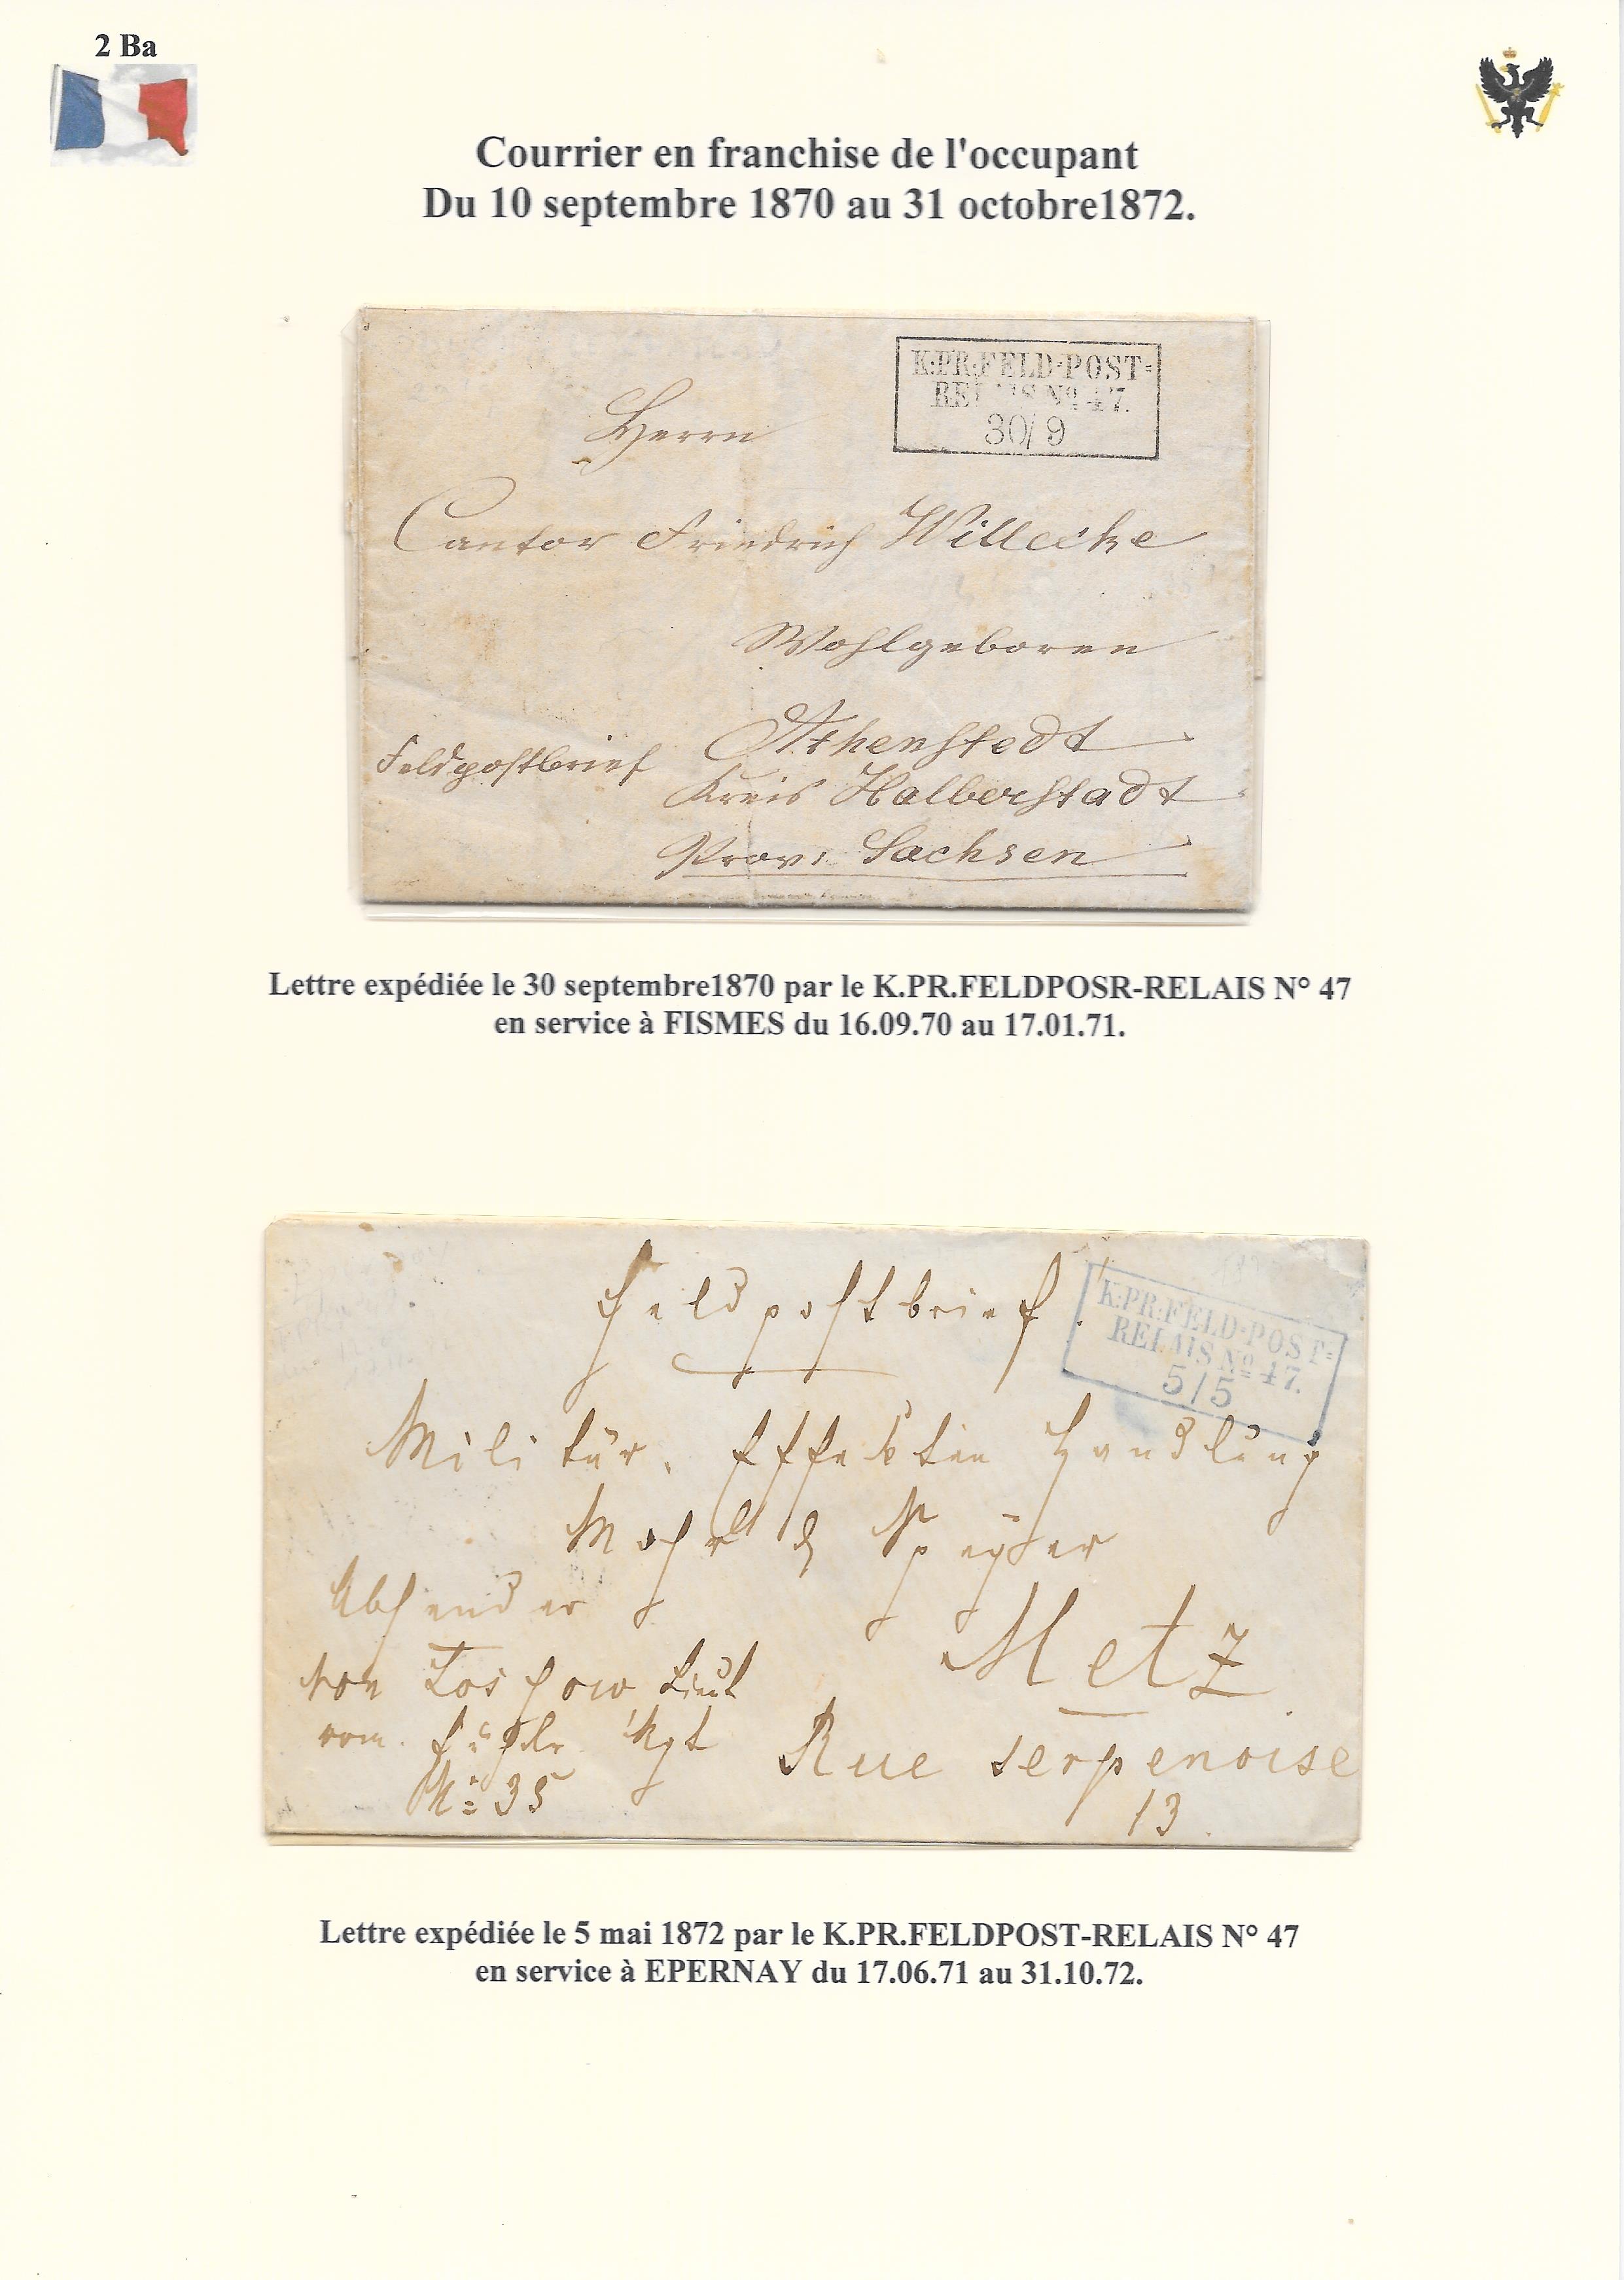 2 Ba
Courrier en franchise de l'occupant
Du 10 septembre 1870 au 31 octobre1872.
K:PR:FELD-POST-
RELAIS No 47.
30/9
Herrn
Cantor Friedrich Willecke
Wohlgeboren
Athenstedt
Feldpostbrief
Kreis Halberstadt
Prov: Sachsen
Lettre expédiée le 30 septembre1870 par le K.PR.FELDPOSR-RELAIS N° 47
en service à FISMES du 16.09.70 au 17.01.71.
Feldpostbrief.
K:PR:FELD-POST-
RELAIS No 47.
5/5
Militär. Effekten Handlung
Mohr & Speÿer
Absender
Metz
von Lieut
vom. Füsilr Rgt
No 35
Rue serpenoise
13
Lettre expédiée le 5 mai 1872 par le K.PR.FELDPOST-RELAIS N° 47
en service à EPERNAY du 17.06.71 au 31.10.72.